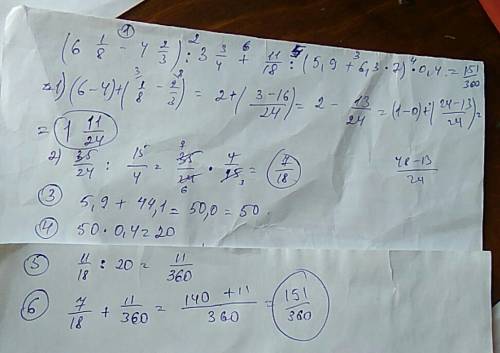 ①
(6 1/8 - 4 2/3) : 3 3/4 + 11/18 : (5,9 + 6,3 · 7) · 0,4 = 151/360
1) (6-4)+(1/8 - 2/3) = 2+(3-16/24) = 2 - 13/24 = (1-0)+(24-13/24) =
= 1 11/24
48-13/24
2) 35/24 : 15/4 = 35/24 · 4/15 = 7/18
③ 5,9 + 44,1 = 50,0 = 50
④ 50 · 0,4 = 20
⑤ 11/18 : 20 = 11/360
⑥ 7/18 + 11/360 = 140+11/360 = 151/360